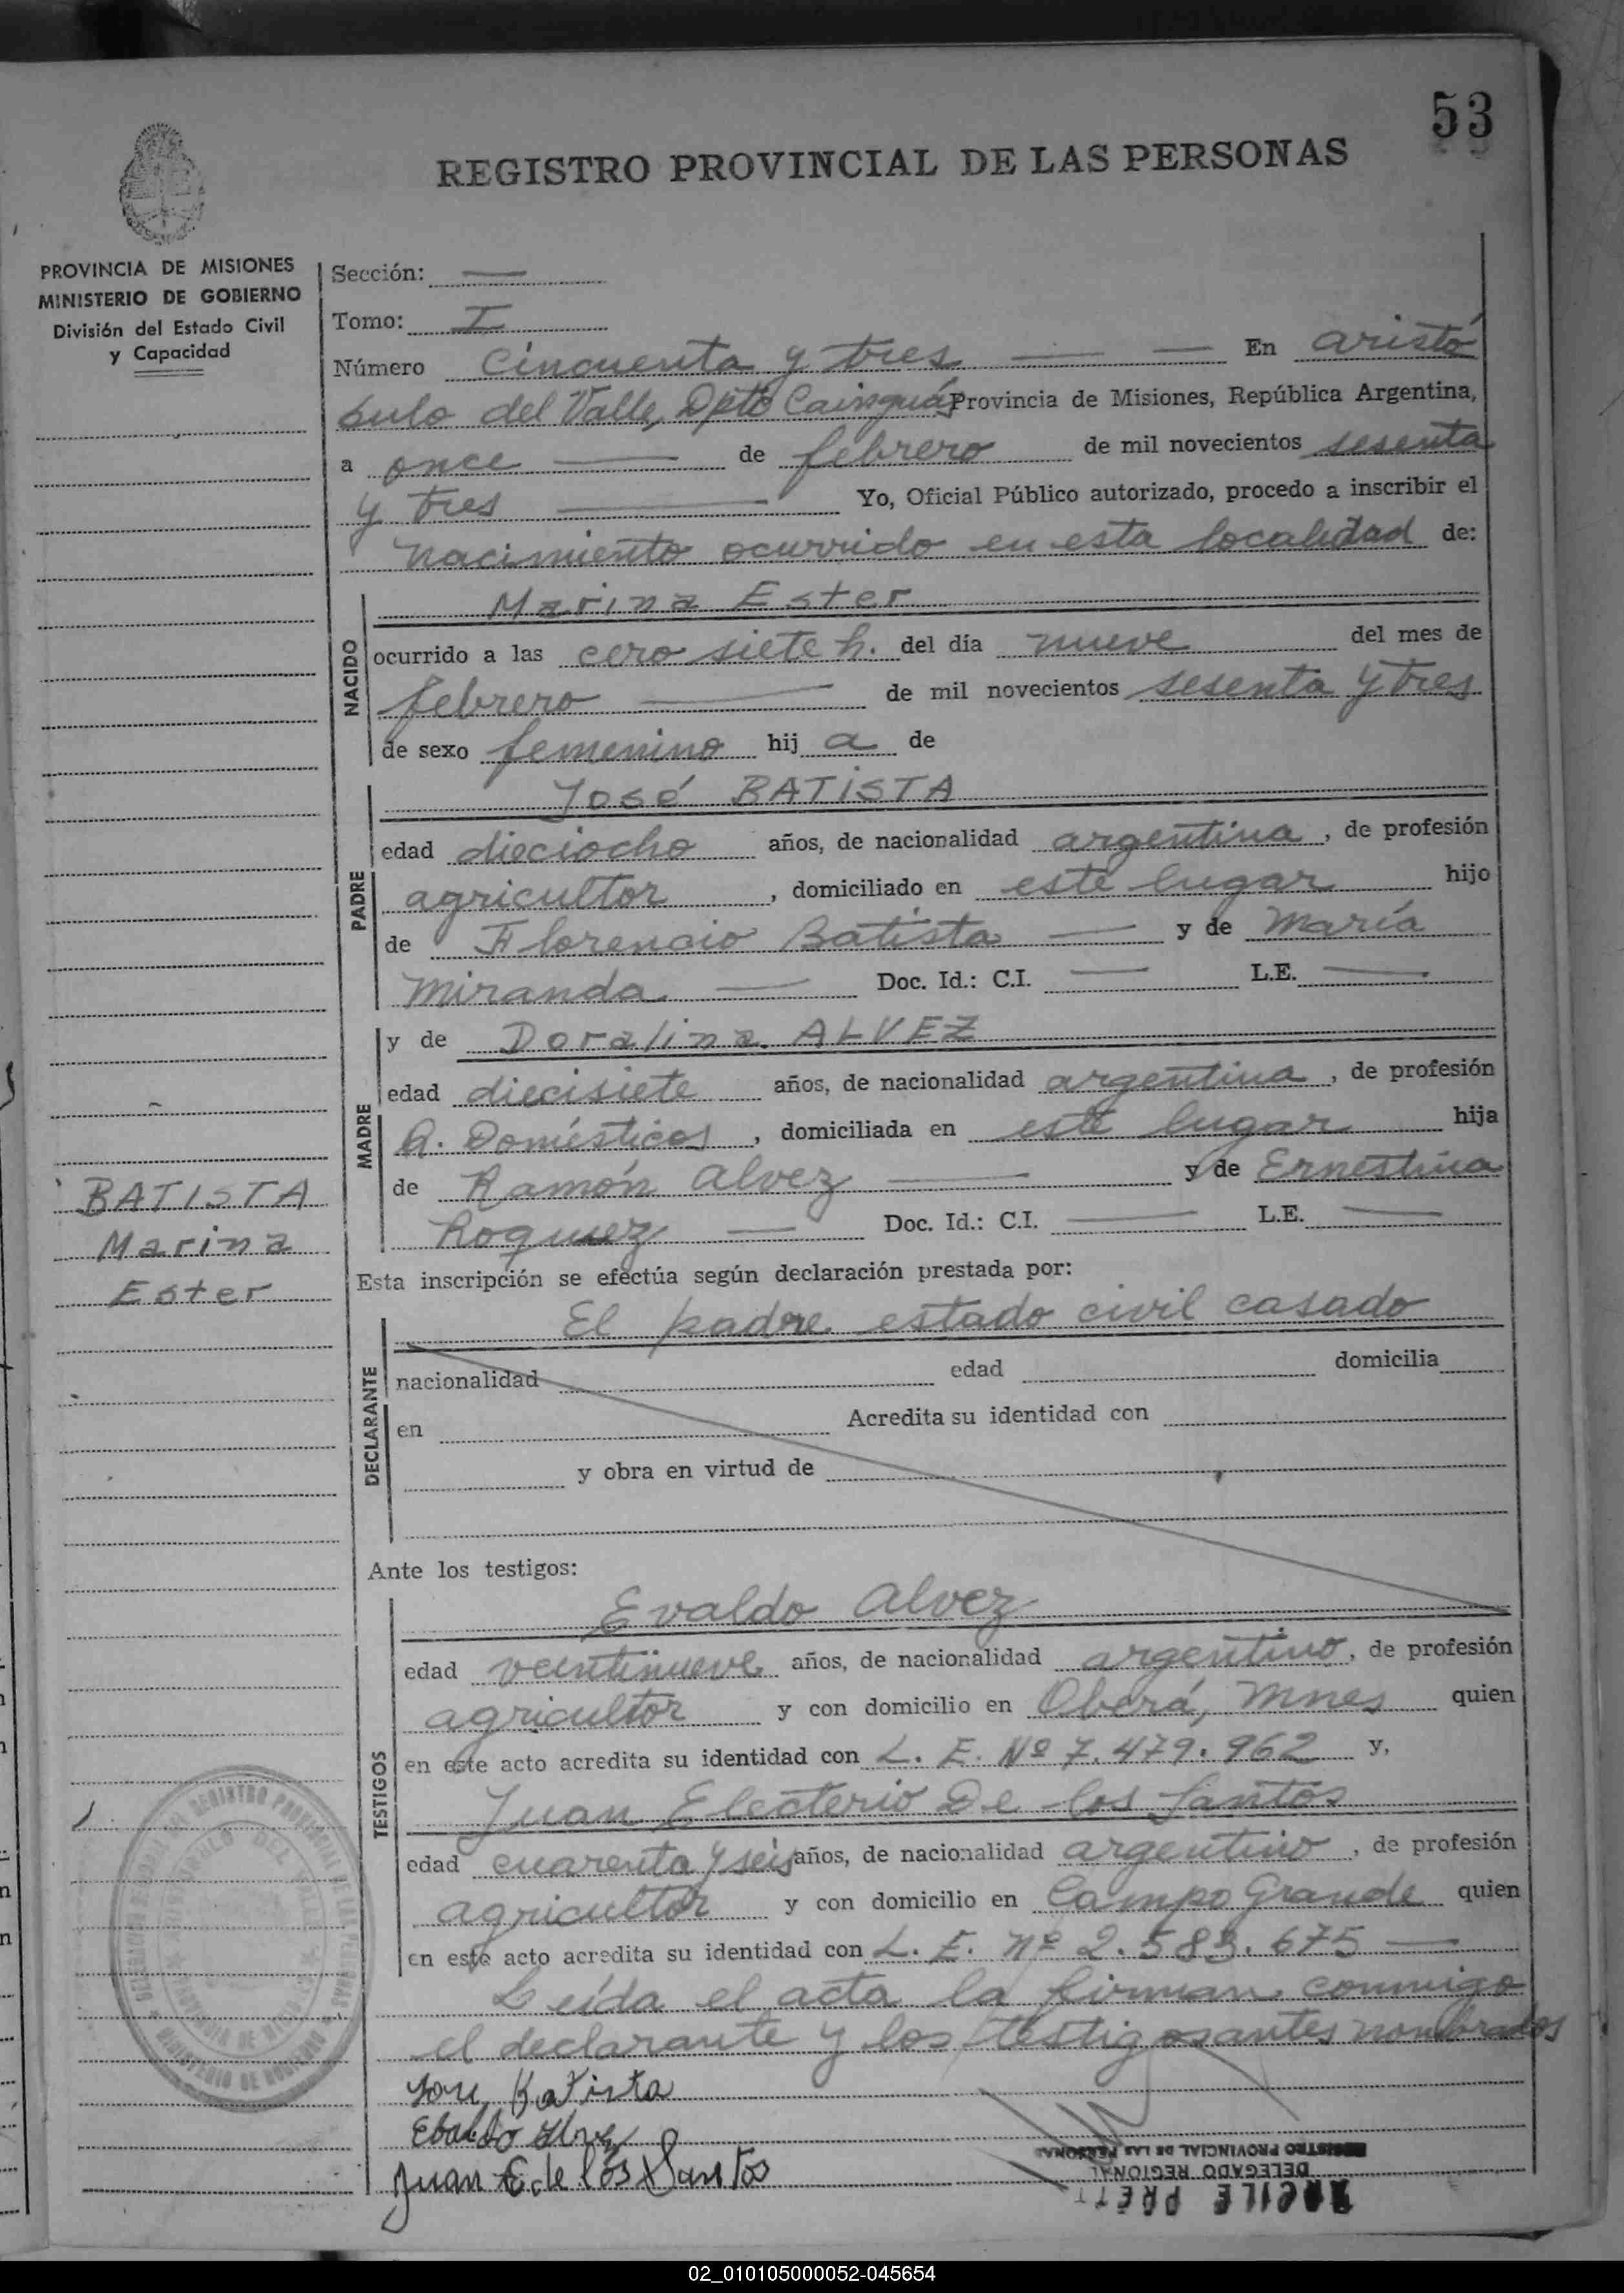 53
REGISTRO PROVINCIAL DE LAS PERSONAS
PROVINCIA DE MISIONES
MINISTERIO DE GOBIERNO
División del Estado Civil
y Capacidad
Sección: —
Tomo: I
Número cincuenta y tres — — En Aristó
bulo del Valle, Dpto Cainguás Provincia de Misiones, República Argentina,
a once — de febrero de mil novecientos sesenta
y tres — Yo, Oficial Público autorizado, procedo a inscribir el
nacimiento ocurrido en esta localidad de:
NACIDO
Marina Ester
ocurrido a las cero siete h. del día nueve del mes de
febrero — de mil novecientos sesenta y tres
de sexo femenino hij a de
PADRE
José BATISTA
edad dieciocho años, de nacionalidad argentina, de profesión
agricultor, domiciliado en este lugar hijo
de Florencio Batista — y de María
Miranda — Doc. Id.: C.I. — L.E. —
MADRE
y de Doralina ALVEZ
edad diecisiete años, de nacionalidad argentina, de profesión
Q. Domésticos, domiciliada en este lugar hija
de Ramón Alvez — y de Ernestina
Roquez — Doc. Id.: C.I. — L.E. —
BATISTA
Marina
Ester
Esta inscripción se efectúa según declaración prestada por:
DECLARANTE
El padre estado civil casado
nacionalidad edad domicilia
en Acredita su identidad con
y obra en virtud de
Ante los testigos:
TESTIGOS
Evaldo Alvez
edad veintinueve años, de nacionalidad argentino, de profesión
agricultor y con domicilio en Oberá, Mnes quien
en este acto acredita su identidad con L. E. Nº 7.479.962 y,
Juan Eleoterio De los Santos
edad cuarenta y seis años, de nacionalidad argentino, de profesión
agricultor y con domicilio en Campo Grande quien
en este acto acredita su identidad con L. E. Nº 2.583.675 —
Leída el acta la firman conmigo
el declarante y los testigos antes nombrados
José Batista
Ebaldo Alvez
Juan E. de los Santos
REGISTRO PROVINCIAL DE LAS PERSONAS
DELEGADO REGIONAL
02_010105000052-045654